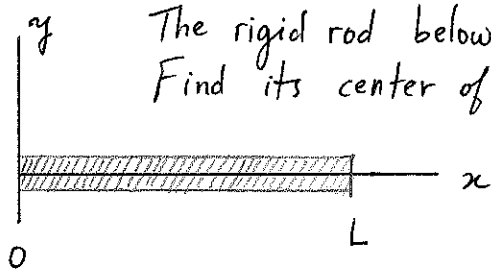 y
The rigid rod below
Find its center of
x
O
L